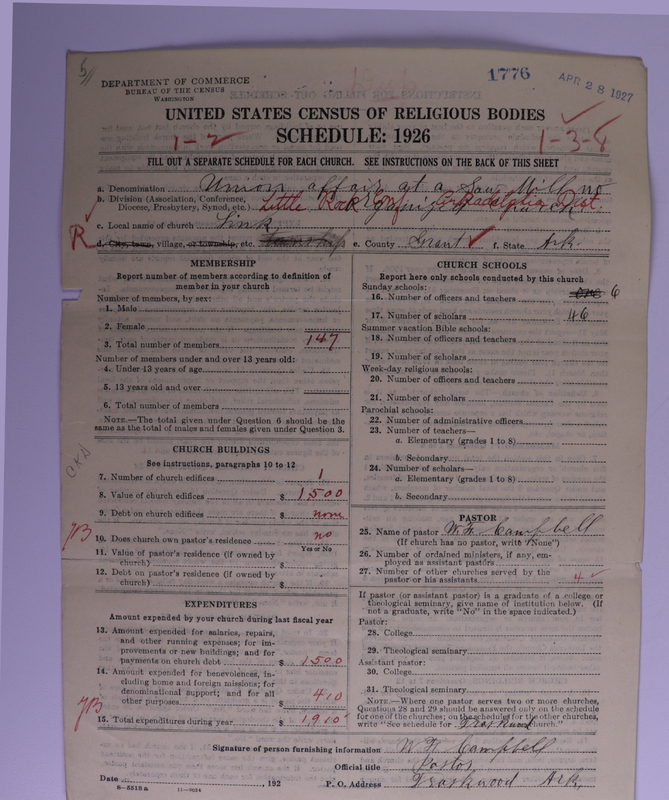 1776
APR 28 1927
DEPARTMENT OF COMMERCE
BUREAU OF THE CENSUS
WASHINGTON
UNITED STATES CENSUS OF RELIGIOUS BODIES
SCHEDULE: 1926
1-2
1-3-8
FILL OUT A SEPARATE SCHEDULE FOR EACH CHURCH. SEE INSTRUCTIONS ON THE BACK OF THIS SHEET
a. Denomination Union affair at a Saw Mill no
b. Division (Association, Conference, Diocese, Presbytery, Synod, etc.) Little Rock Conf Arkadelphia Dist.
church
c. Local name of church
R
d. City, town, village, or township, etc. township e. County Grant f. State Ark.
MEMBERSHIP
Report number of members according to definition of
member in your church
Number of members, by sex:
1. Male
2. Female
3. Total number of members 147
Number of members under and over 13 years old:
4. Under 13 years of age
5. 13 years old and over
6. Total number of members
NOTE.—The total given under Question 6 should be the
same as the total of males and females given under Question 3.
CHURCH BUILDINGS
See instructions, paragraphs 10 to 12
7. Number of church edifices 1
8. Value of church edifices $ 1500
9. Debt on church edifices $ none
10. Does church own pastor's residence no
Yes or No
11. Value of pastor's residence (if owned by
church) $
12. Debt on pastor's residence (if owned by
church) $
EXPENDITURES
Amount expended by your church during last fiscal year
13. Amount expended for salaries, repairs,
and other running expenses; for im-
provements or new buildings; and for
payments on church debt $ 1500
14. Amount expended for benevolences, in-
cluding home and foreign missions; for
denominational support; and for all
other purposes $ 410
15. Total expenditures during year $ 1910
CHURCH SCHOOLS
Report here only schools conducted by this church
Sunday schools:
16. Number of officers and teachers 6
17. Number of scholars 46
Summer vacation Bible schools:
18. Number of officers and teachers
19. Number of scholars
Week-day religious schools:
20. Number of officers and teachers
21. Number of scholars
Parochial schools:
22. Number of administrative officers
23. Number of teachers—
a. Elementary (grades 1 to 8)
b. Secondary
24. Number of scholars—
a. Elementary (grades 1 to 8)
b. Secondary
PASTOR
25. Name of pastor Campbell
(If church has no pastor, write "None")
26. Number of ordained ministers, if any, em-
ployed as assistant pastors
27. Number of other churches served by the
pastor or his assistants 4
If pastor (or assistant pastor) is a graduate of a college or
theological seminary, give name of institution below. (If
not a graduate, write "No" in the space indicated.)
Pastor:
28. College
29. Theological seminary
Assistant pastor:
30. College
31. Theological seminary
NOTE.—Where one pastor serves two or more churches,
Questions 28 and 29 should be answered only on the schedule
for one of the churches; on the schedules for the other churches,
write "See schedule for church."
Signature of person furnishing information Campbell
Official title Pastor
Date , 192 P. O. Address Ark.
8-5518 a 11-9024